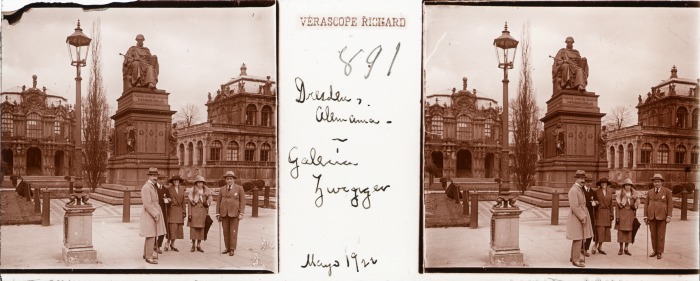 VÉRASCOPE RICHARD
891
Dresden.
Alemania -
Galeria
Zwegger
Mayo 192